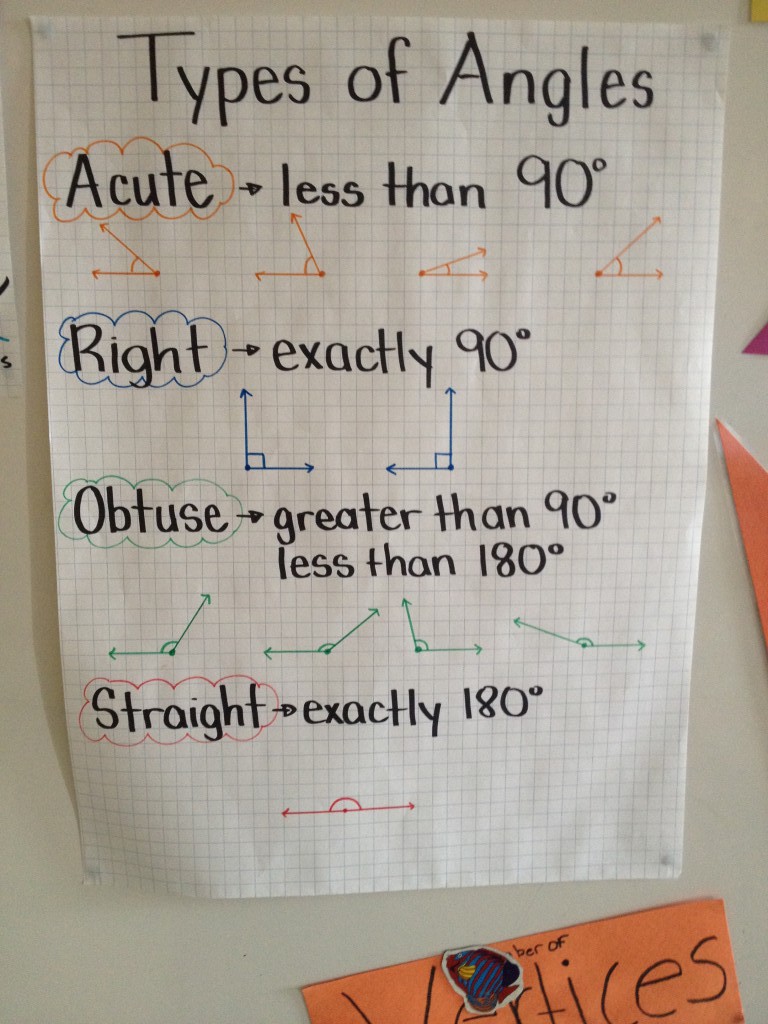 Types of Angles
Acute → less than 90°
Right → exactly 90°
Obtuse → greater than 90°
less than 180°
Straight → exactly 180°
of
Vertices
s